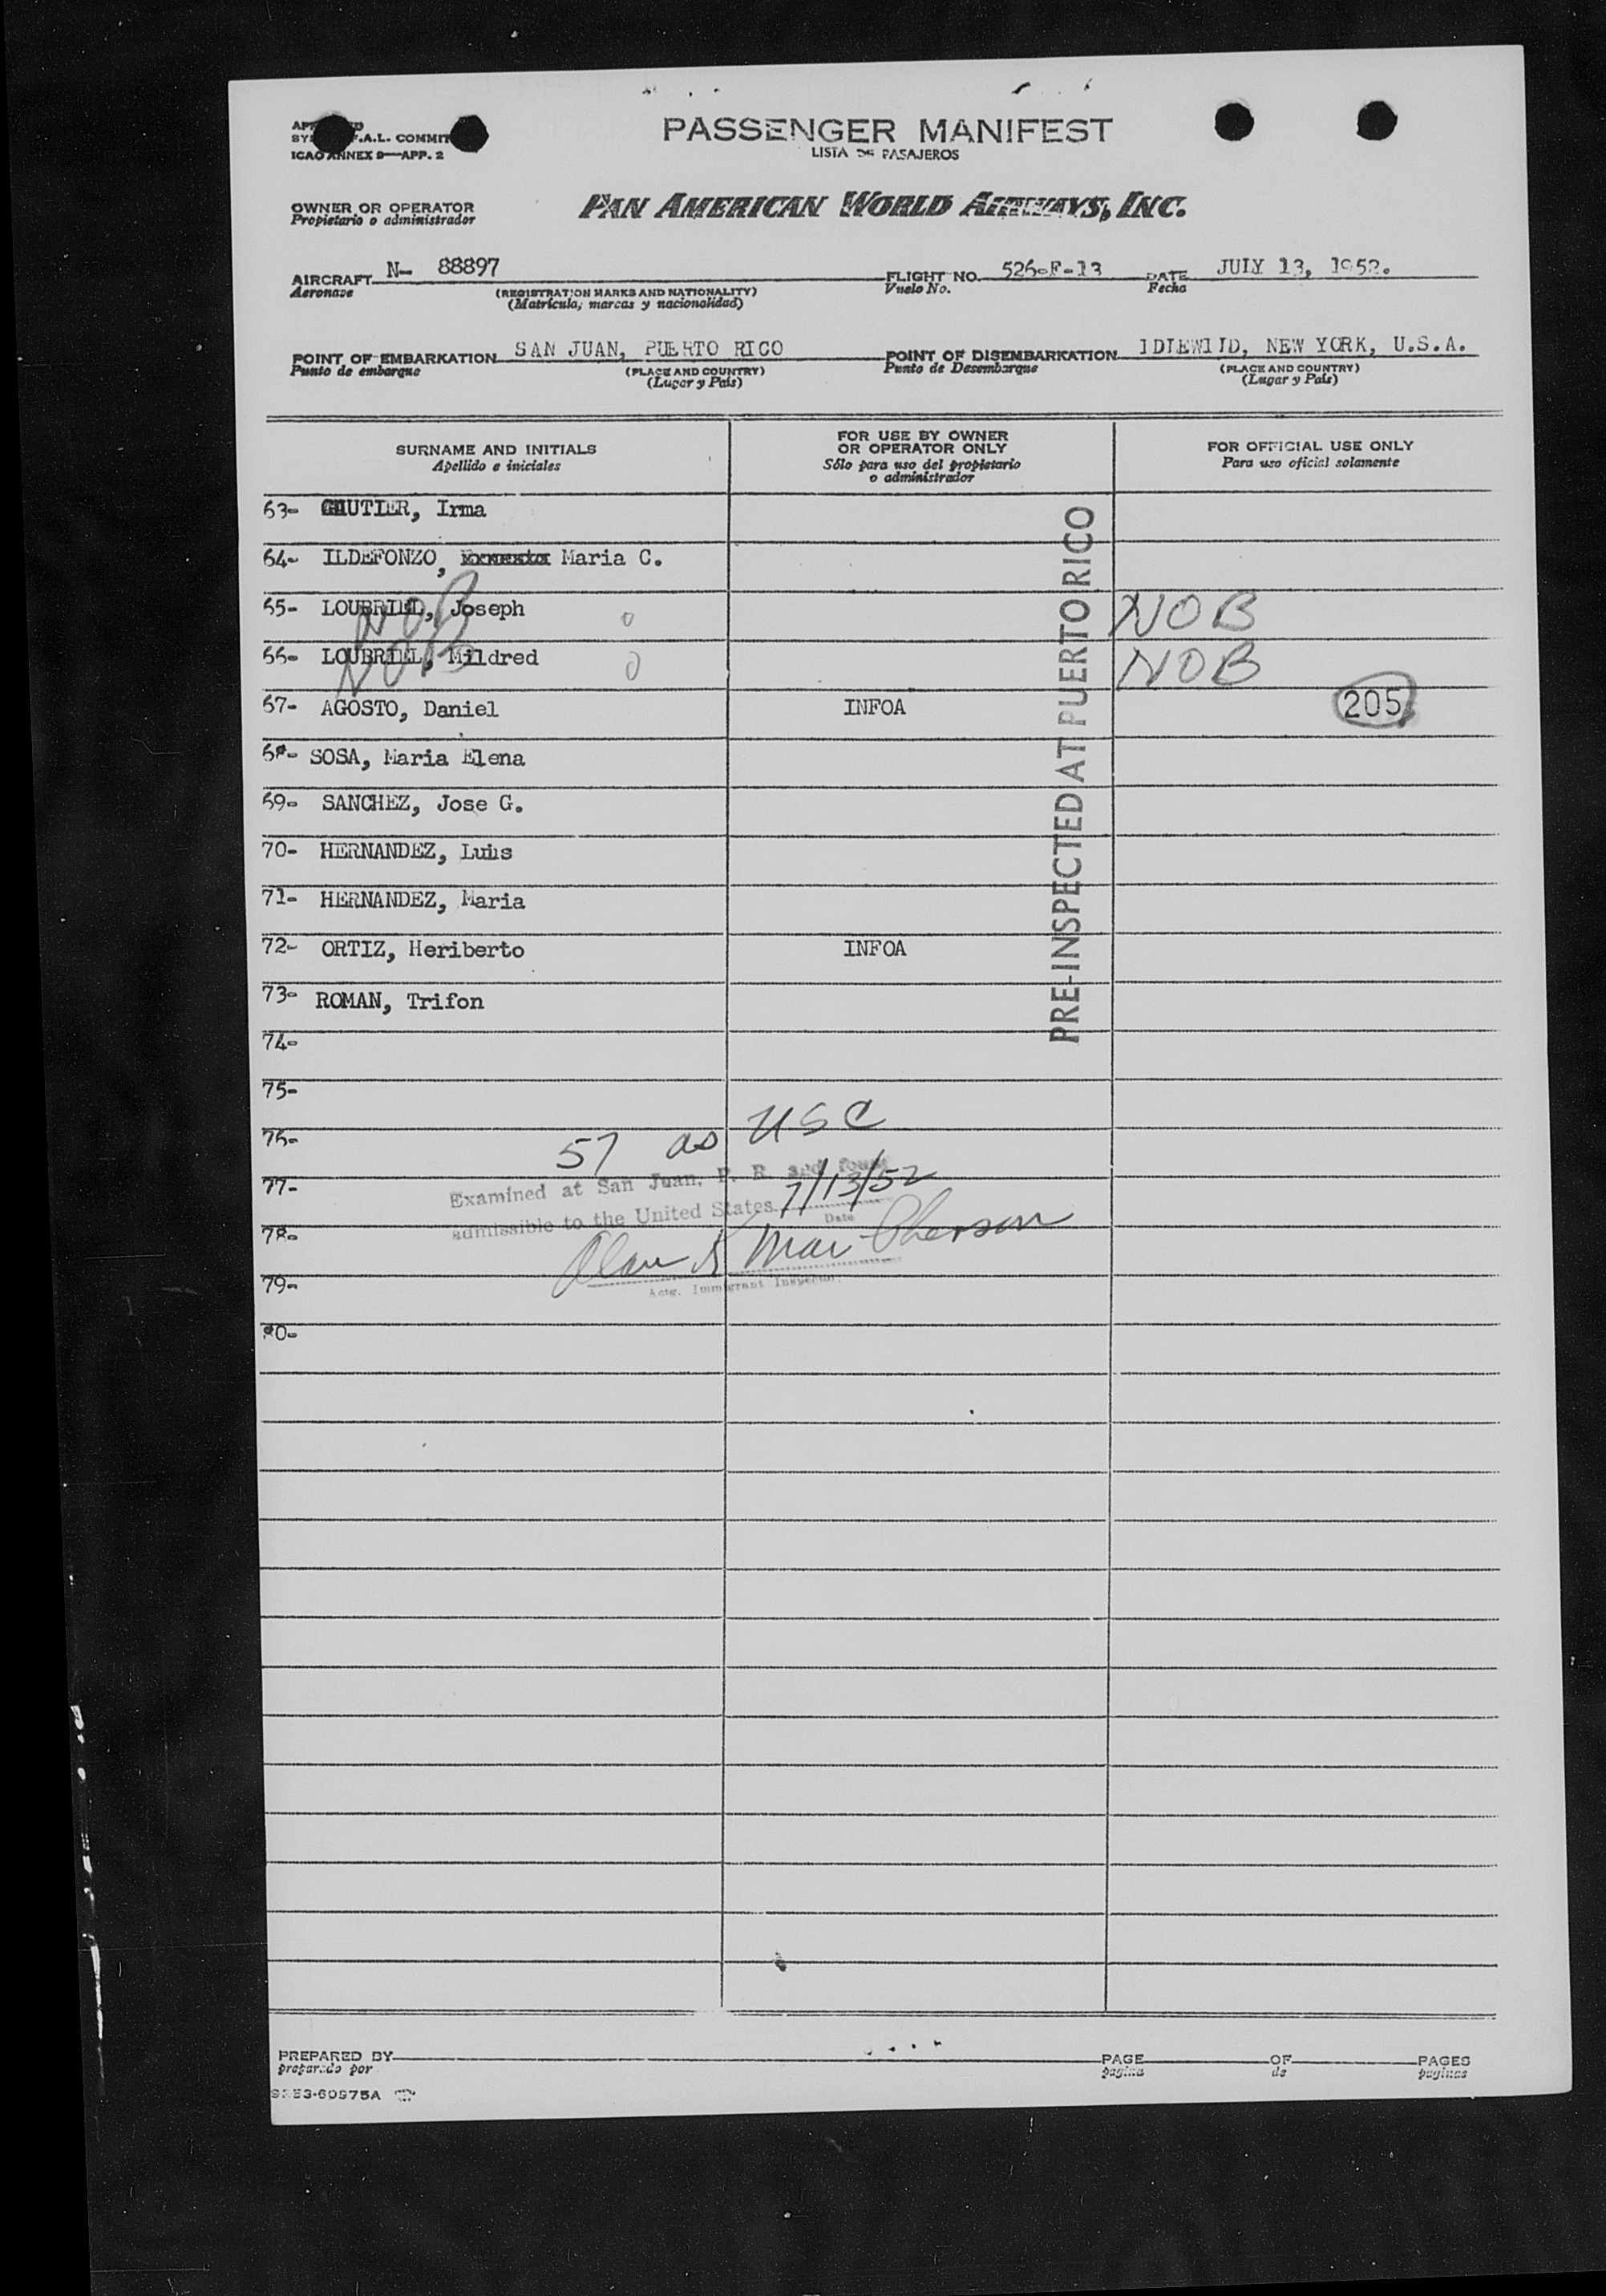 PASSENGER MANIFEST
LISTA DE PASAJEROS
.A.L. COMMIT
ICAO ANNEX 9—APP. 2
OWNER OR OPERATOR
Propietario o administrador
PAN AMERICAN WORLD AIRWAYS, INC.
AIRCRAFT N- 88897 FLIGHT NO. 526-F-13 DATE JULY 13, 1952.
Aeronave (REGISTRATION MARKS AND NATIONALITY) Vuelo No. Fecha
(Matrícula, marcas y nacionalidad)
POINT OF EMBARKATION SAN JUAN, PUERTO RICO POINT OF DISEMBARKATION IDLEWILD, NEW YORK, U.S.A.
Punto de embarque (PLACE AND COUNTRY) Punto de Desembarque (PLACE AND COUNTRY)
(Lugar y País) (Lugar y País)
SURNAME AND INITIALS FOR USE BY OWNER OR OPERATOR ONLY FOR OFFICIAL USE ONLY
Apellido e iniciales Sólo para uso del propietario o administrador Para uso oficial solamente
63- GAUTIER, Irma
64- ILDEFONZO, Maria C.
65- LOUBRIEL, Joseph NOB 0 NOB
66- LOUBRIEL, Mildred NOB 0 NOB
67- AGOSTO, Daniel INFOA 205
68- SOSA, Maria Elena
69- SANCHEZ, Jose G.
70- HERNANDEZ, Luis
71- HERNANDEZ, Maria
72- ORTIZ, Heriberto INFOA
73- ROMAN, Trifon
PRE-INSPECTED AT PUERTO RICO
74-
75-
76-
57 as USC
77-
Examined at San Juan, P. R. and found
admissible to the United States 7/13/52
Date
78-
Alan R MacPherson
79-
Actg. Immigrant Inspector
80-
PREPARED BY PAGE OF PAGES
preparado por pagina de paginas
60975A